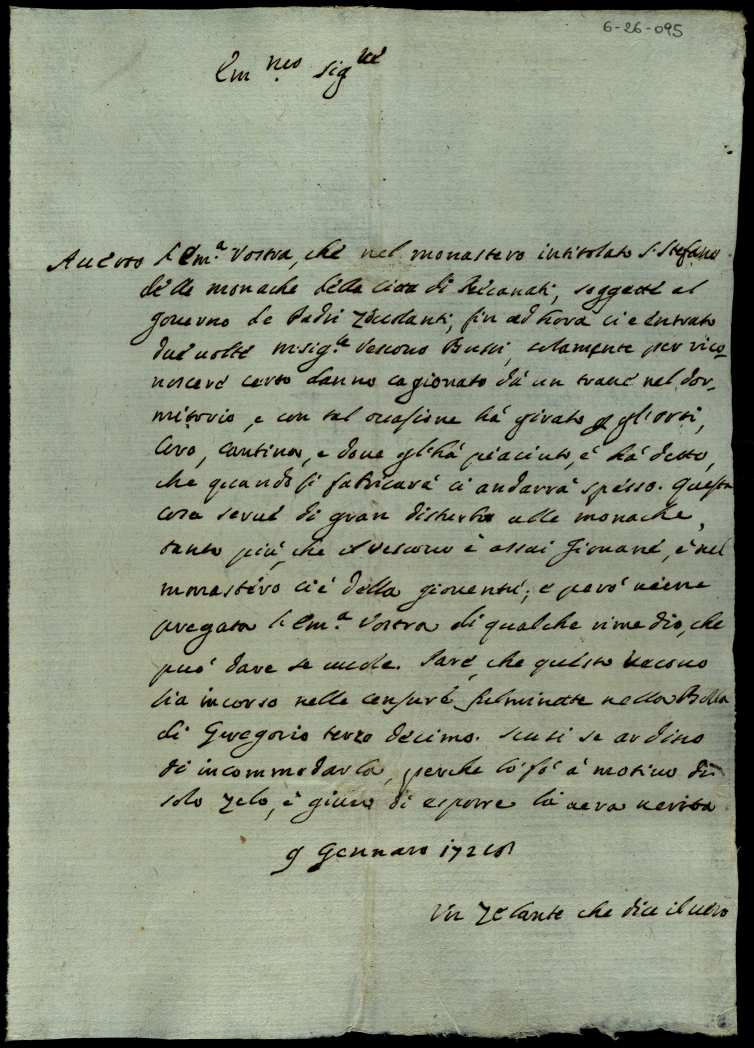 6-26-095
Em.mo Sig.re
Auerto l'Em.a Vostra, che nel monastero intitolato S. Stefano
delle monache della citta di Recanati, soggette al
governo de Padri Zoccolanti, fin ad hora ci è entrato
due uolte monsig.re Vescouo Bussi, solamente per rico=
noscere certo danno cagionato da un traue nel dor=
mitorio, e con tal occasione há girato gl'orti,
Coro, cantina, e doue gl'há piaciuto, e há detto,
che quando si fabricará ci andarrá spesso. Questa
cosa serue di gran disturbo alle monache,
tanto piú, che il uescouo è assai giouane, è nel
monastero ci è della giouentú; e peró uiene
pregata l'Em.a Vostra di qualche rimedio, che
puó dare se uuole. Pare, che questo uescouo
sia incorso nelle censure fulminate nella Bolla
di Gregorio terzo decimo. Scusi se ardisco
di incommodarla, perche ló fó á motiuo di
solo zelo, è giuro di esporre la uera uerità
9 Gennaro
Un Zelante che dice il uero